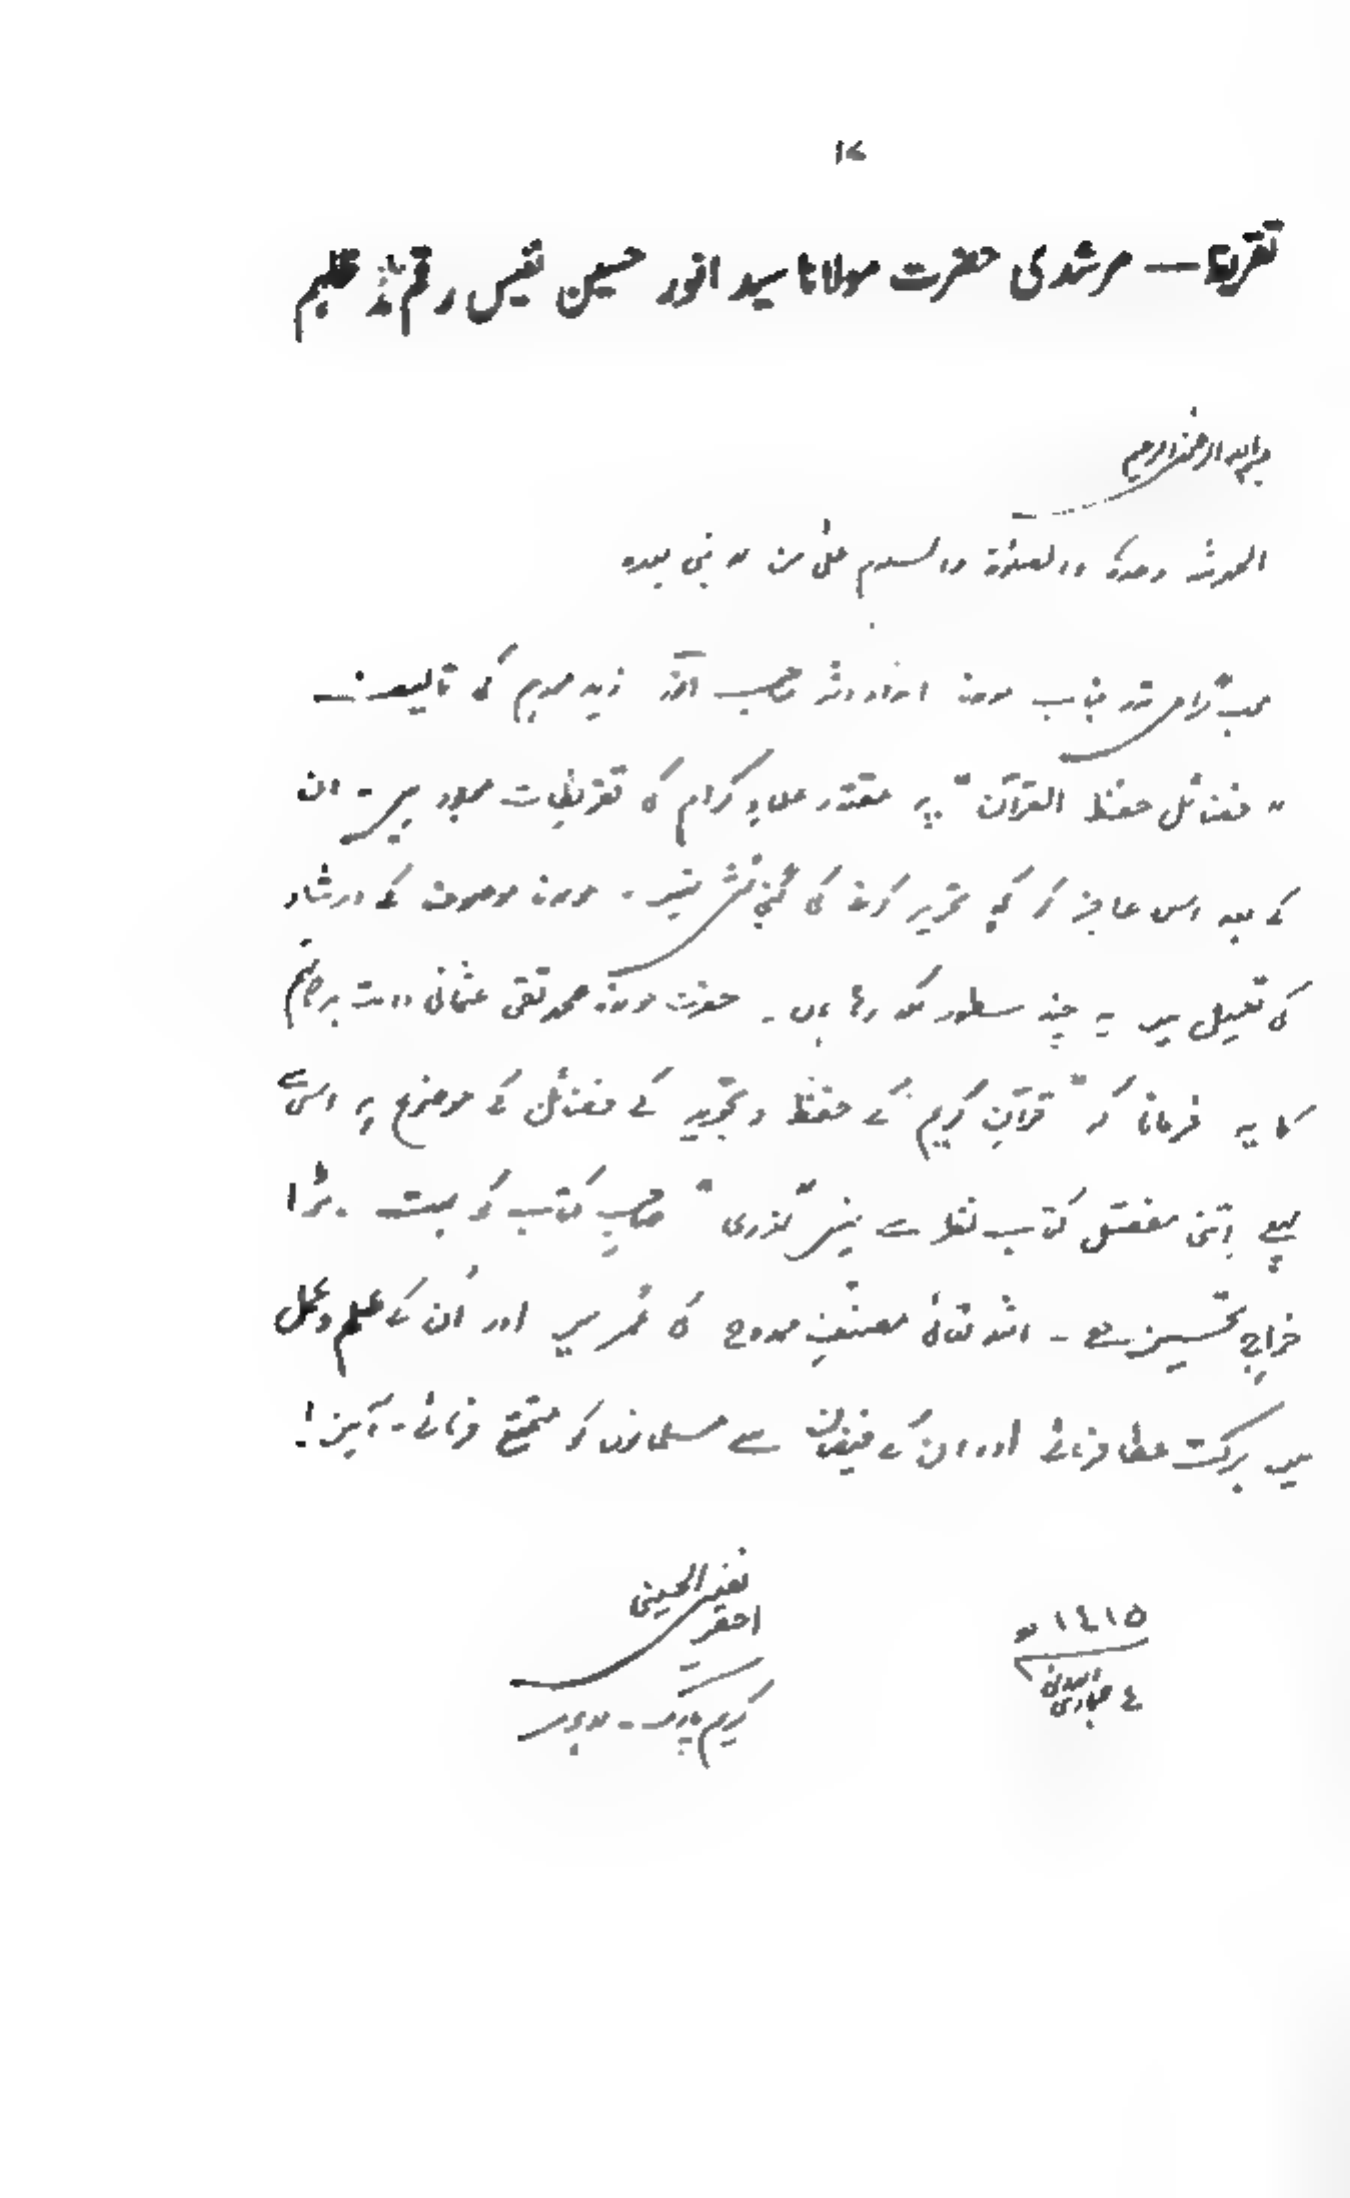 ۱۷
تقریظ — مرشدی حضرت مولانا سید انور حسین نفیس رقم مدظلہم
بسم اللہ الرحمٰن الرحیم
الحمدللہ وحدہٗ والصلوٰۃ والسلام علیٰ من لا نبی بعدہ
محب گرامی قدر جناب مولانا امداد اللہ صاحب انور زید مجدہم کی تالیف
" فضائل حفظ القرآن " پر مقتدر علماءِ کرام کی تقریظات موجود ہیں ۔ ان
کے بعد اس عاجز کو کچھ تحریر کرنے کی گنجائش نہیں ۔ مولانا موصوف کے ارشاد
کی تعمیل میں یہ چند سطور لکھ رہا ہوں ۔ حضرت مولانا محمد تقی عثمانی دامت برکاتہم
کا یہ فرمانا کہ " قرآنِ کریم کے حفظ و تجوید کے فضائل کے موضوع پر اس سے
پہلے اتنی مفصّل کتاب نظر سے نہیں گذری " صاحبِ کتاب کو بہت بڑا
خراجِ تحسین ہے ۔ اللہ تعالیٰ مصنّفِ ممدوح کی عُمر میں اور اُن کے علم و عمل
میں برکت عطا فرمائے اور ان کے فیضان سے مسلمانوں کو متمتع فرمائے ۔ آمین !
احقر نفیس الحسینی
کریم پارک ۔ لاہور
۱٤۱۵ ھ
٤ جمادی الاولیٰ